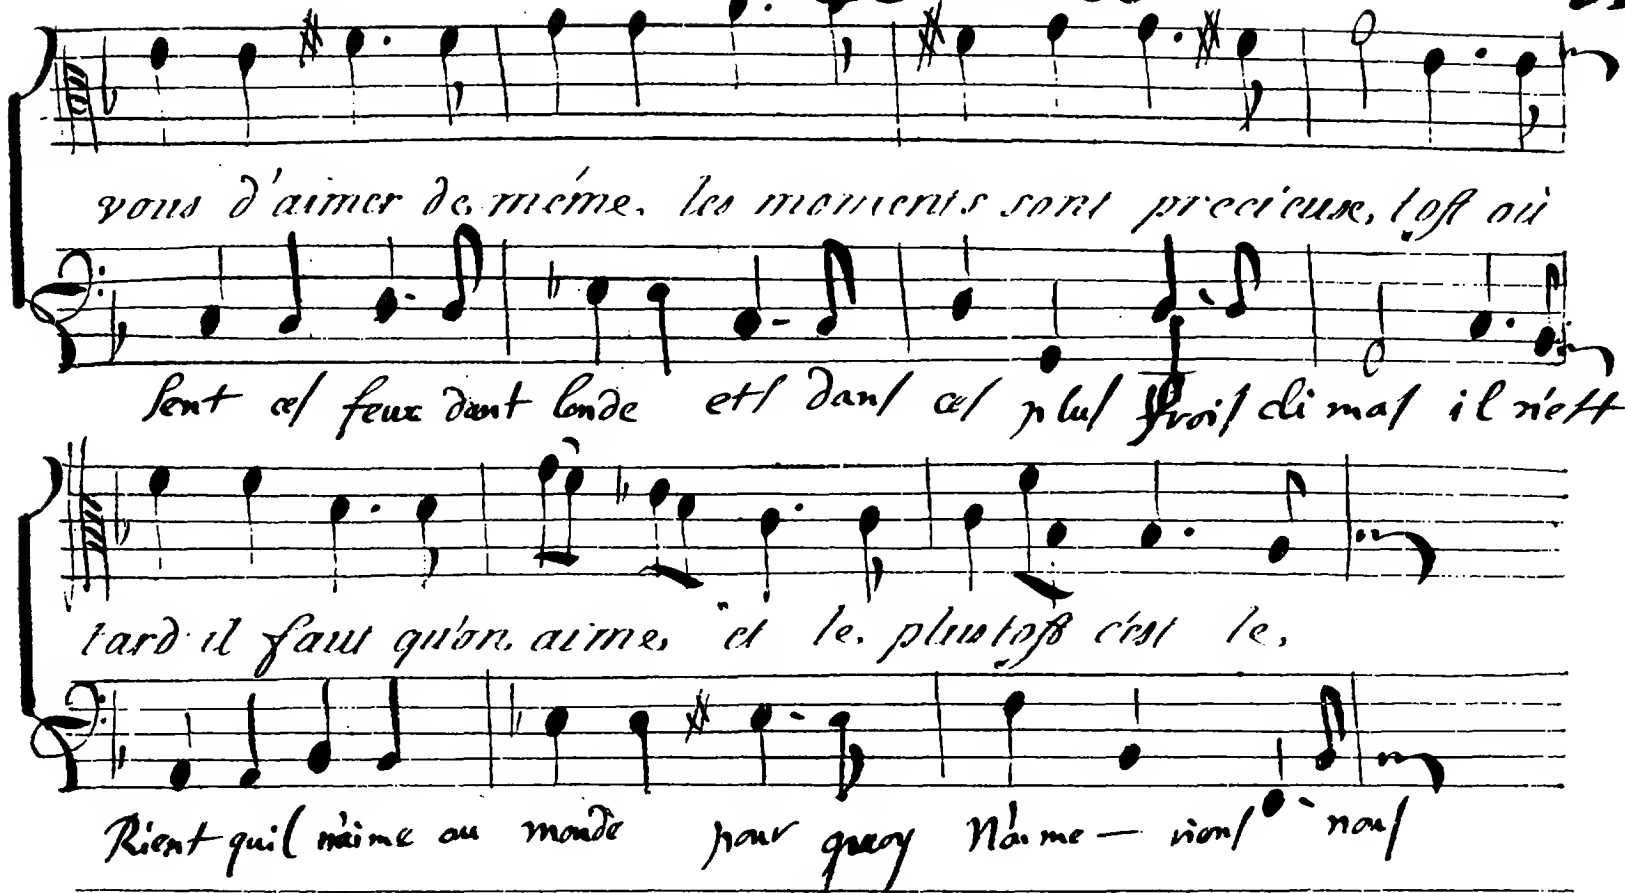 vous d'aimer de même. les moments sont precieuse, tost où
sent ces feux dant londe ets dans ces plus frois climas il n'est
tard il faut qu'on aime, et le plus tost c'est le,
Rient quil n'aime au monde pour quoy N'aime — rions nous